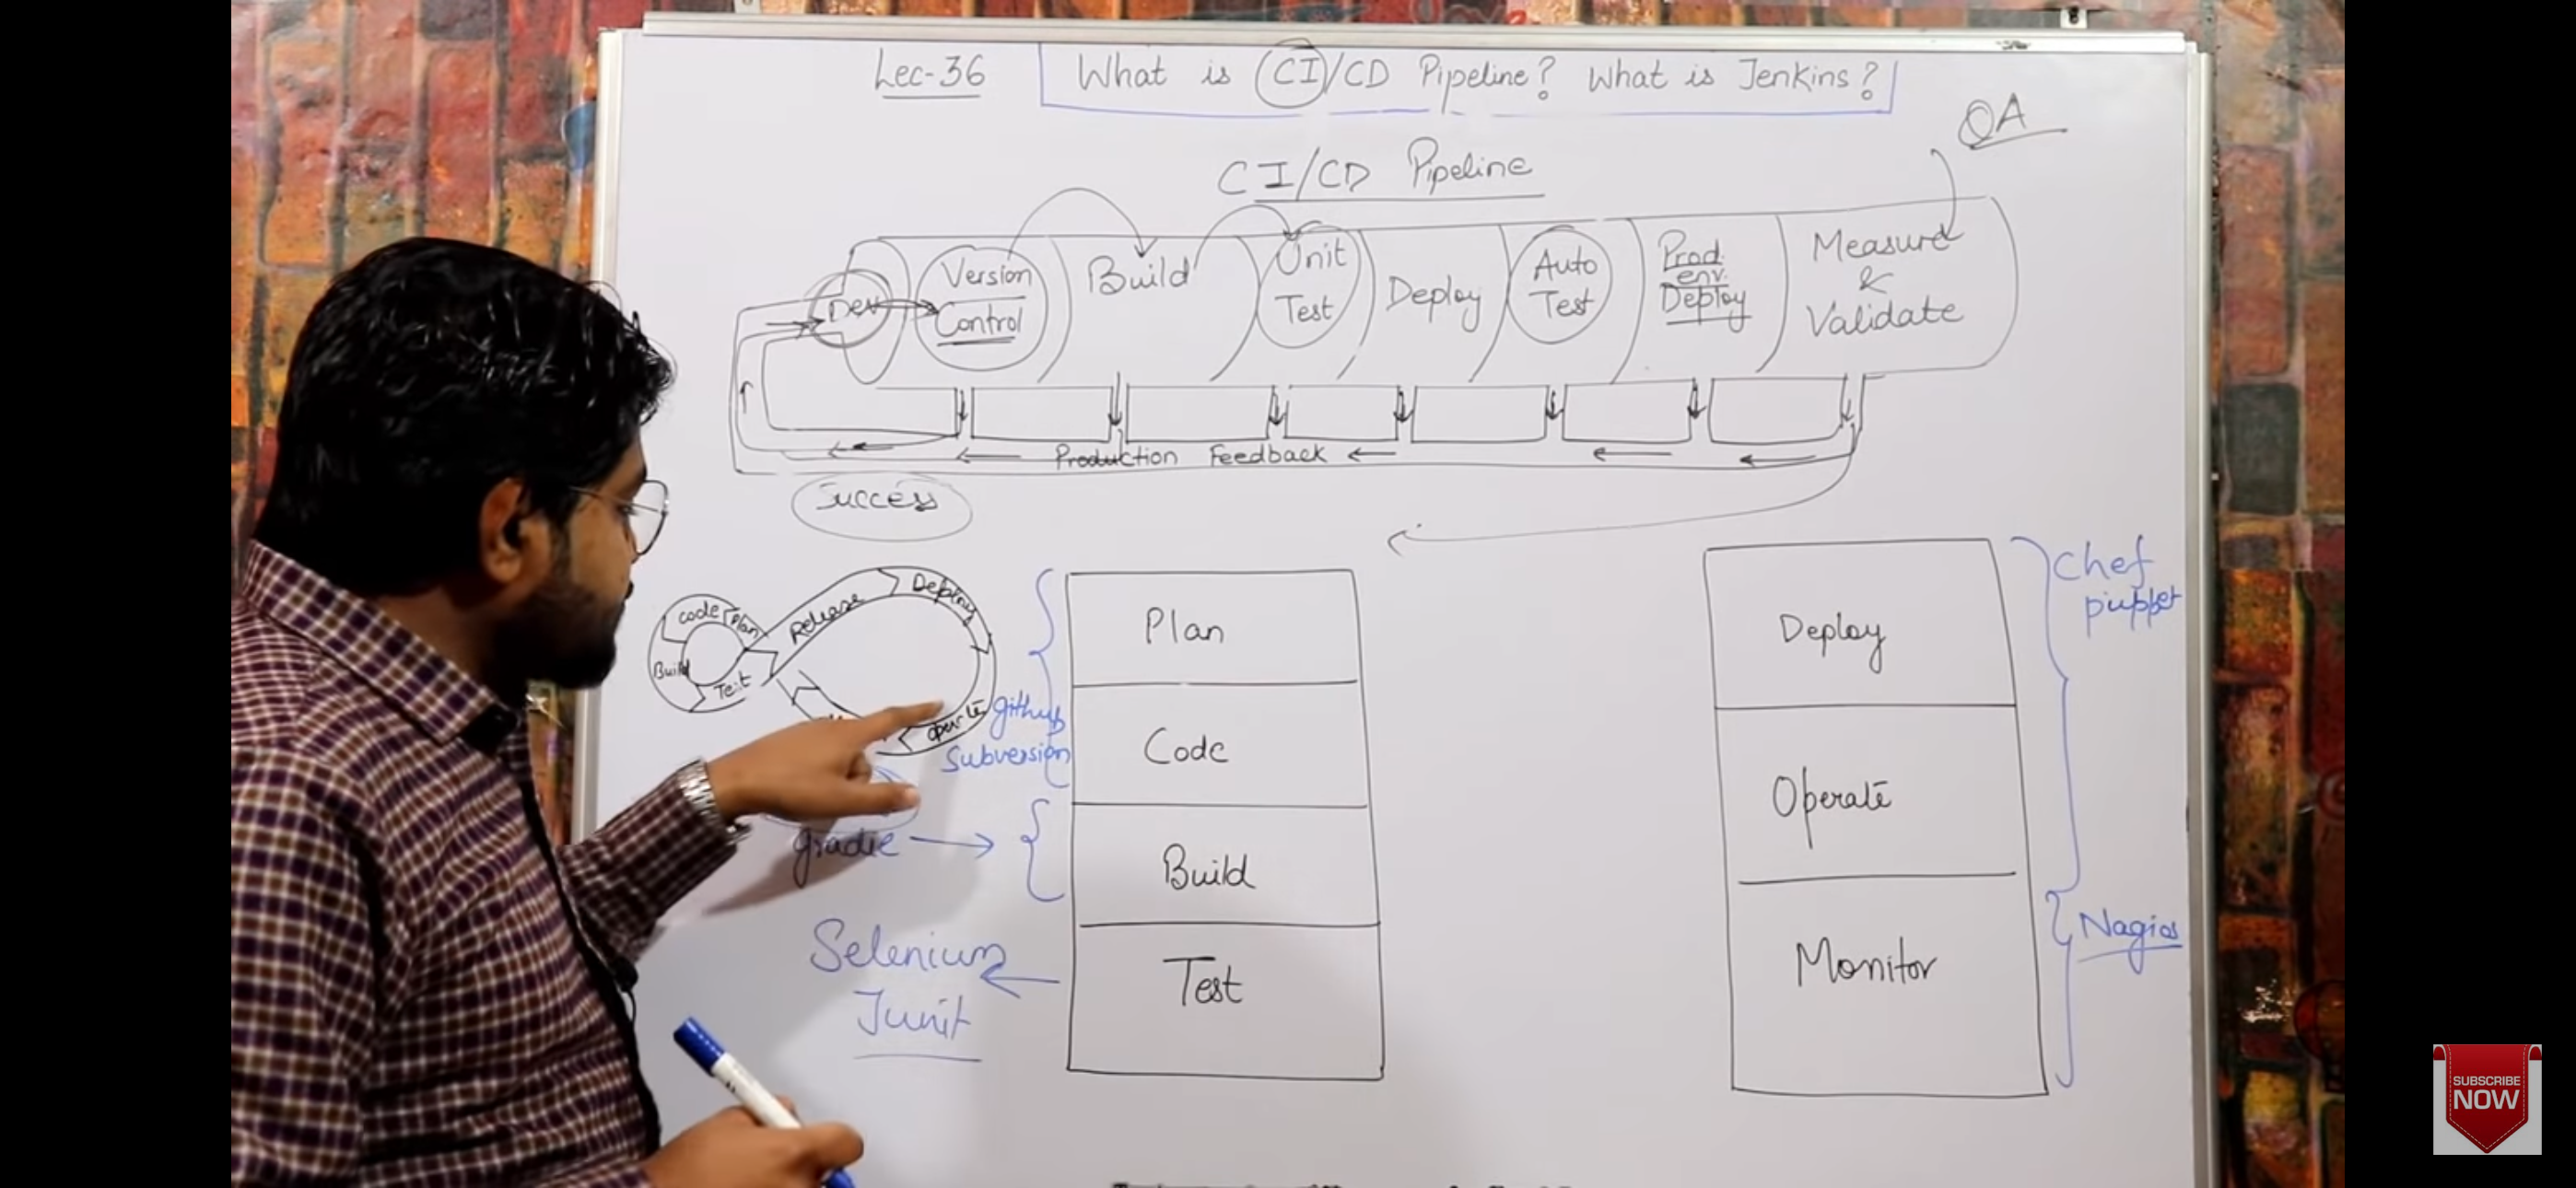 Lec-36 What is CI/CD Pipeline? What is Jenkins?
QA
CI/CD Pipeline
Dev
Version
Control
Build
Unit
Test
Deploy
Auto
Test
Prod.
env.
Deploy
Measure
&
Validate
Production Feedback
Success
Code
Plan
Build
Test
Release
Deploy
Operate
Github
Subversion
gradle
Selenium
Junit
Plan
Code
Build
Test
Deploy
Operate
Monitor
Chef
puppet
Nagios
SUBSCRIBE
NOW